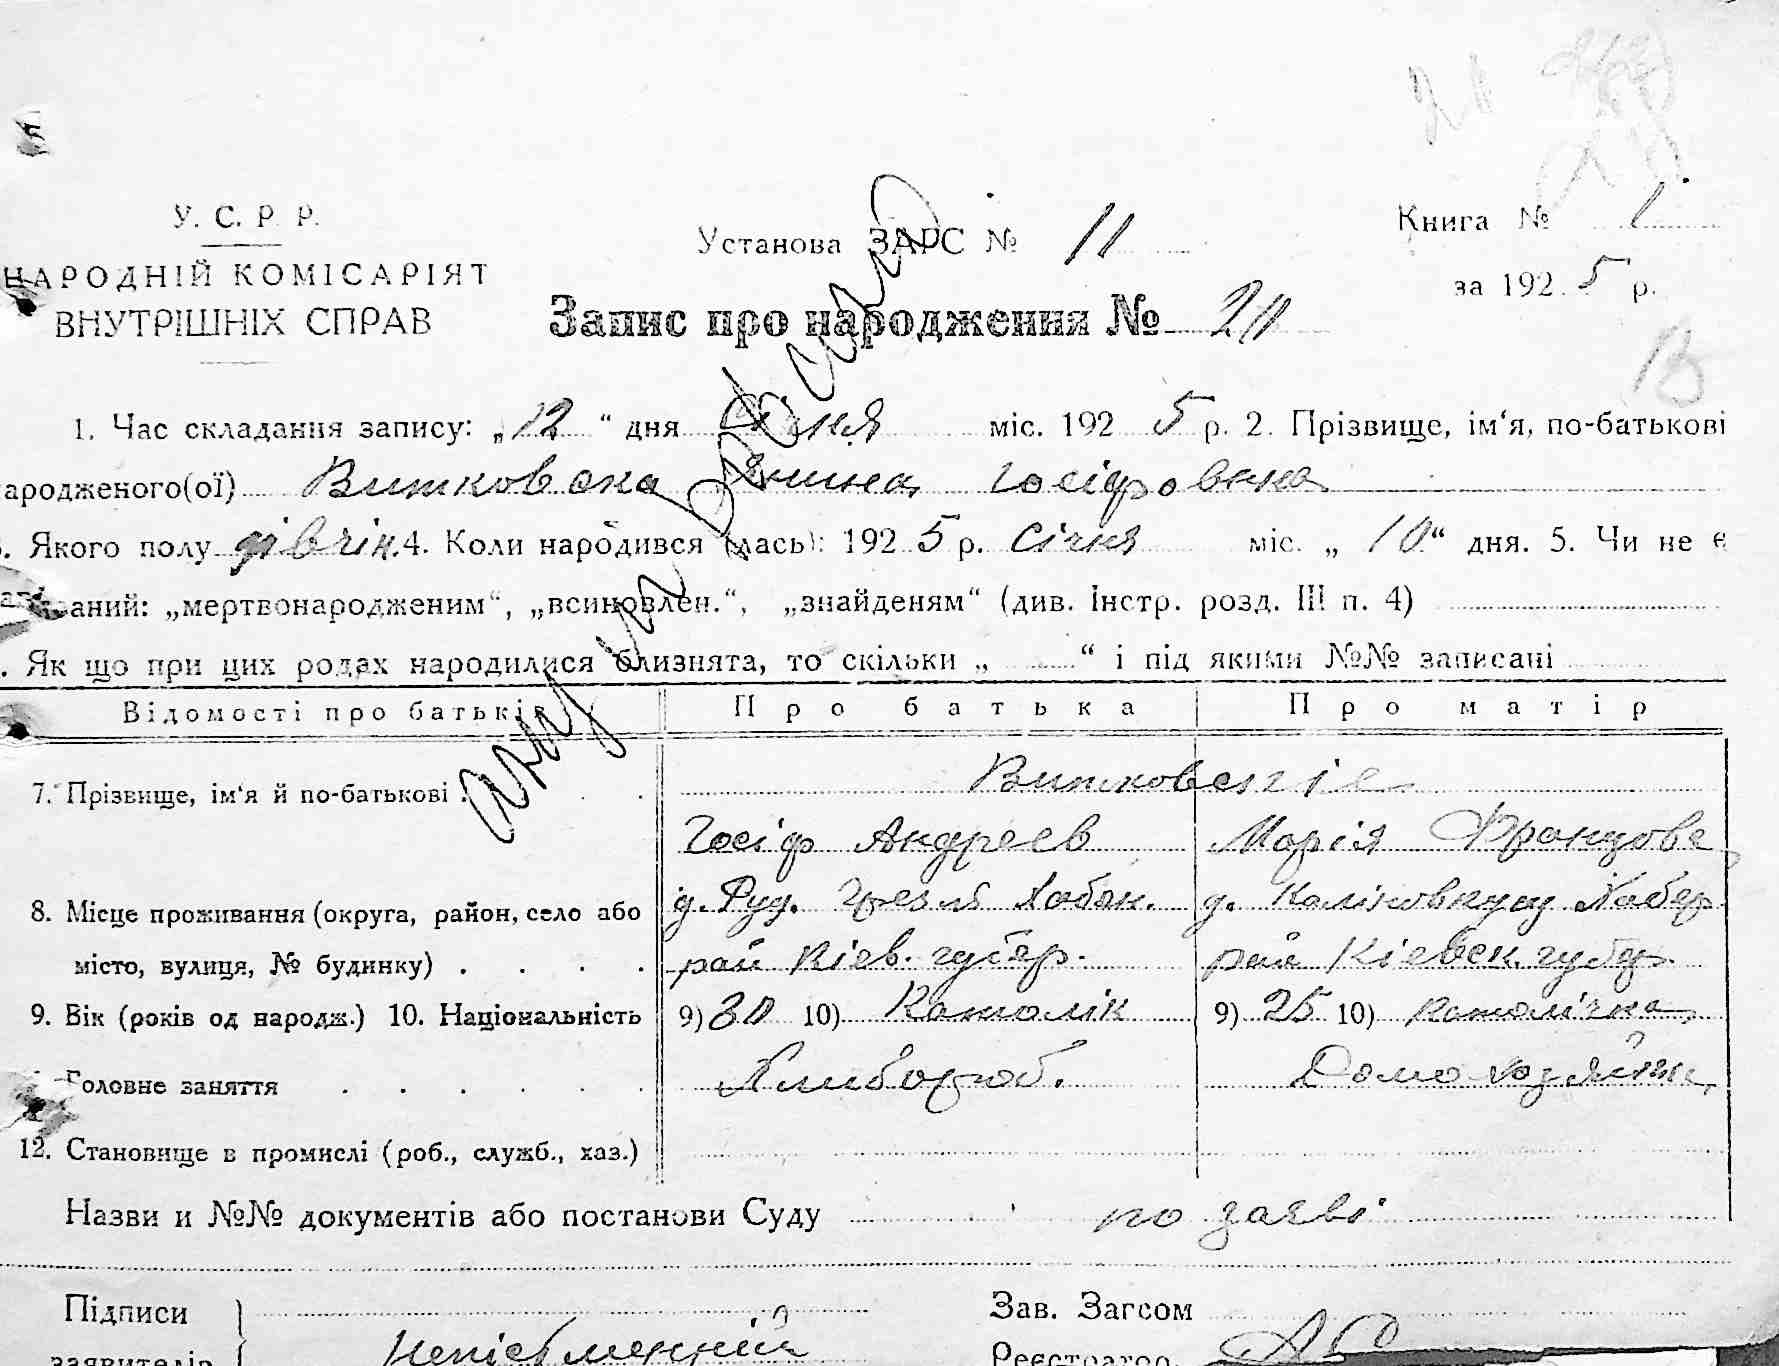 У. С. Р. Р.
НАРОДНІЙ КОМІСАРІЯТ
ВНУТРІШНІХ СПРАВ
Установа ЗАРС № 11
Книга № 1
за 1925 р.
Запис про народження № 20
1. Час складання запису: „12“ дня Січня міс. 1925 р. 2. Прізвище, ім‘я, по-батькові
народженого(ої) Витковска Янина Іосіфовна
Якого полу дівчін. 4. Коли народився (лась): 1925 р. Січня міс. „10“ дня. 5. Чи не є
„мертвонародженим“, „всиновлен.“, „знайденям“ (див. Інстр. розд. III п. 4)
Як що при цих родах народилися близнята, то скільки „ “ і під якими №№ записані
Відомості про батьків Про батька Про матір
7. Прізвище, ім‘я й по-батькові Витковсгіе
Іосіф Андреев Марія Францове
8. Місце проживання (округа, район, село або д. Руд. Хабан. д.
місто, вулиця, № будинку) рай Кіев. губер. рай Кіевск. губер.
9. Вік (років од народж.) 10. Національність 9) 30 10) Католік 9) 25 10) католічка
Головне заняття Хлибороб. Домохозяйка
12. Становище в промислі (роб., служб., хаз.)
Назви и №№ документів або постанови Суду по заяві
Підписи Зав. Загсом
заявителів непісьменний Реєстратор.